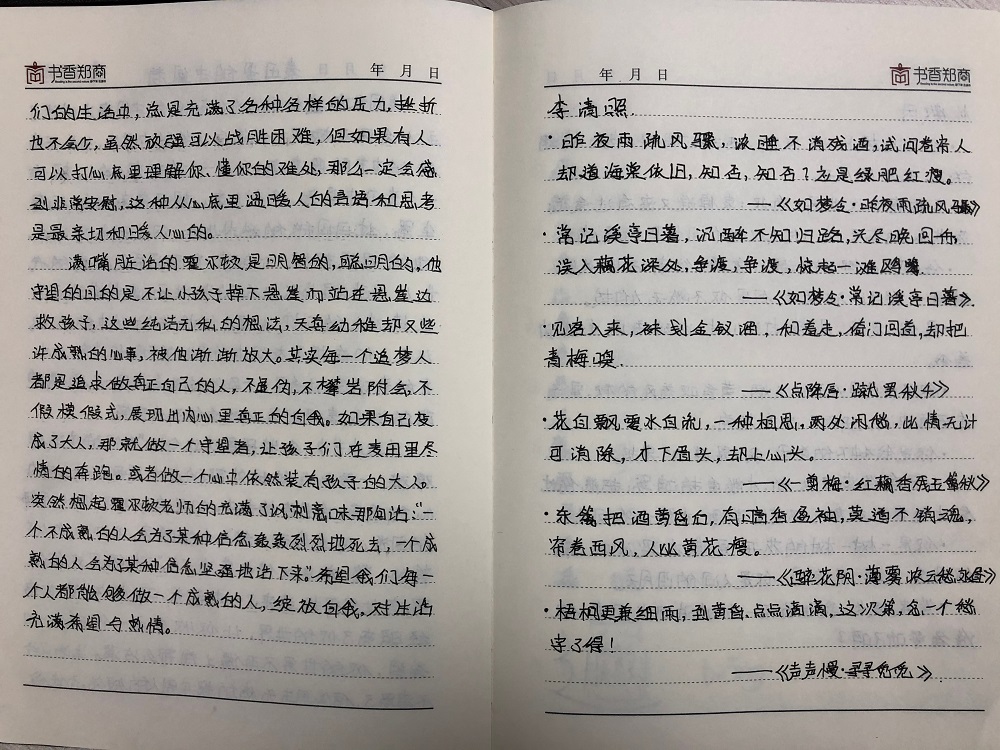 书香郑商
年 月 日
们的生活中，总是充满了各种各样的压力，挫折
也不会少，虽然顽强可以战胜困难，但如果有人
可以打心底里理解你、懂你的难处，那么一定会感
到非常安慰，这种从心底里温暖人的言语和思考
是最亲切和暖人心的。
满嘴脏话的霍尔敦是明智的，聪明的，他
守望的目的是不让小孩子掉下悬崖而站在悬崖边
救孩子，这些纯洁无私的想法，天真幼稚却又些
许成熟的心事，被他渐渐放大。其实每一个追梦人
都是追求做真正自己的人，不虚伪，不攀岩附会，不
假模假式，展现出内心里真正的自我。如果自己变
成了大人，那就做一个守望者，让孩子们在麦田里尽
情的奔跑。或者做一个心中依然装有孩子的大人。
突然想起霍尔敦老师的充满了讽刺意味那句话：“一
个不成熟的人会为了某种信念轰轰烈烈地死去，一个成
熟的人会为了某种信念坚强地活下来。”希望我们每一
个人都能够做一个成熟的人，绽放自我。对生活
充满希望与热情。
年 月 日
书香郑商
李清照.
·昨夜雨疏风骤，浓睡不消残酒；试问卷帘人
却道海棠依旧，知否，知否？应是绿肥红瘦。
——《如梦令·昨夜雨疏风骤》
·常记溪亭日暮，沉醉不知归路，天尽晚回舟，
误入藕花深处，争渡，争渡，惊起一滩鸥鹭
——《如梦令·常记溪亭日暮》.
·见客入来，袜刬金钗溜，和羞走，倚门回首，却把
青梅嗅.
——《点降唇·蹴罢秋千》
·花自飘零水自流，一种相思，两处闲愁，此情无计
可消除，才下眉头，却上心头。
——《一剪梅·红藕香残玉簟秋》
·东篱把酒黄昏后，有暗香盈袖，莫道不销魂，
帘卷西风，人比黄花瘦。
——《醉花阴·薄雾浓云愁永昼》
·梧桐更兼细雨，到黄昏.点点滴滴，这次第，怎一个愁
字了得！
——《声声慢·寻寻觅觅》.